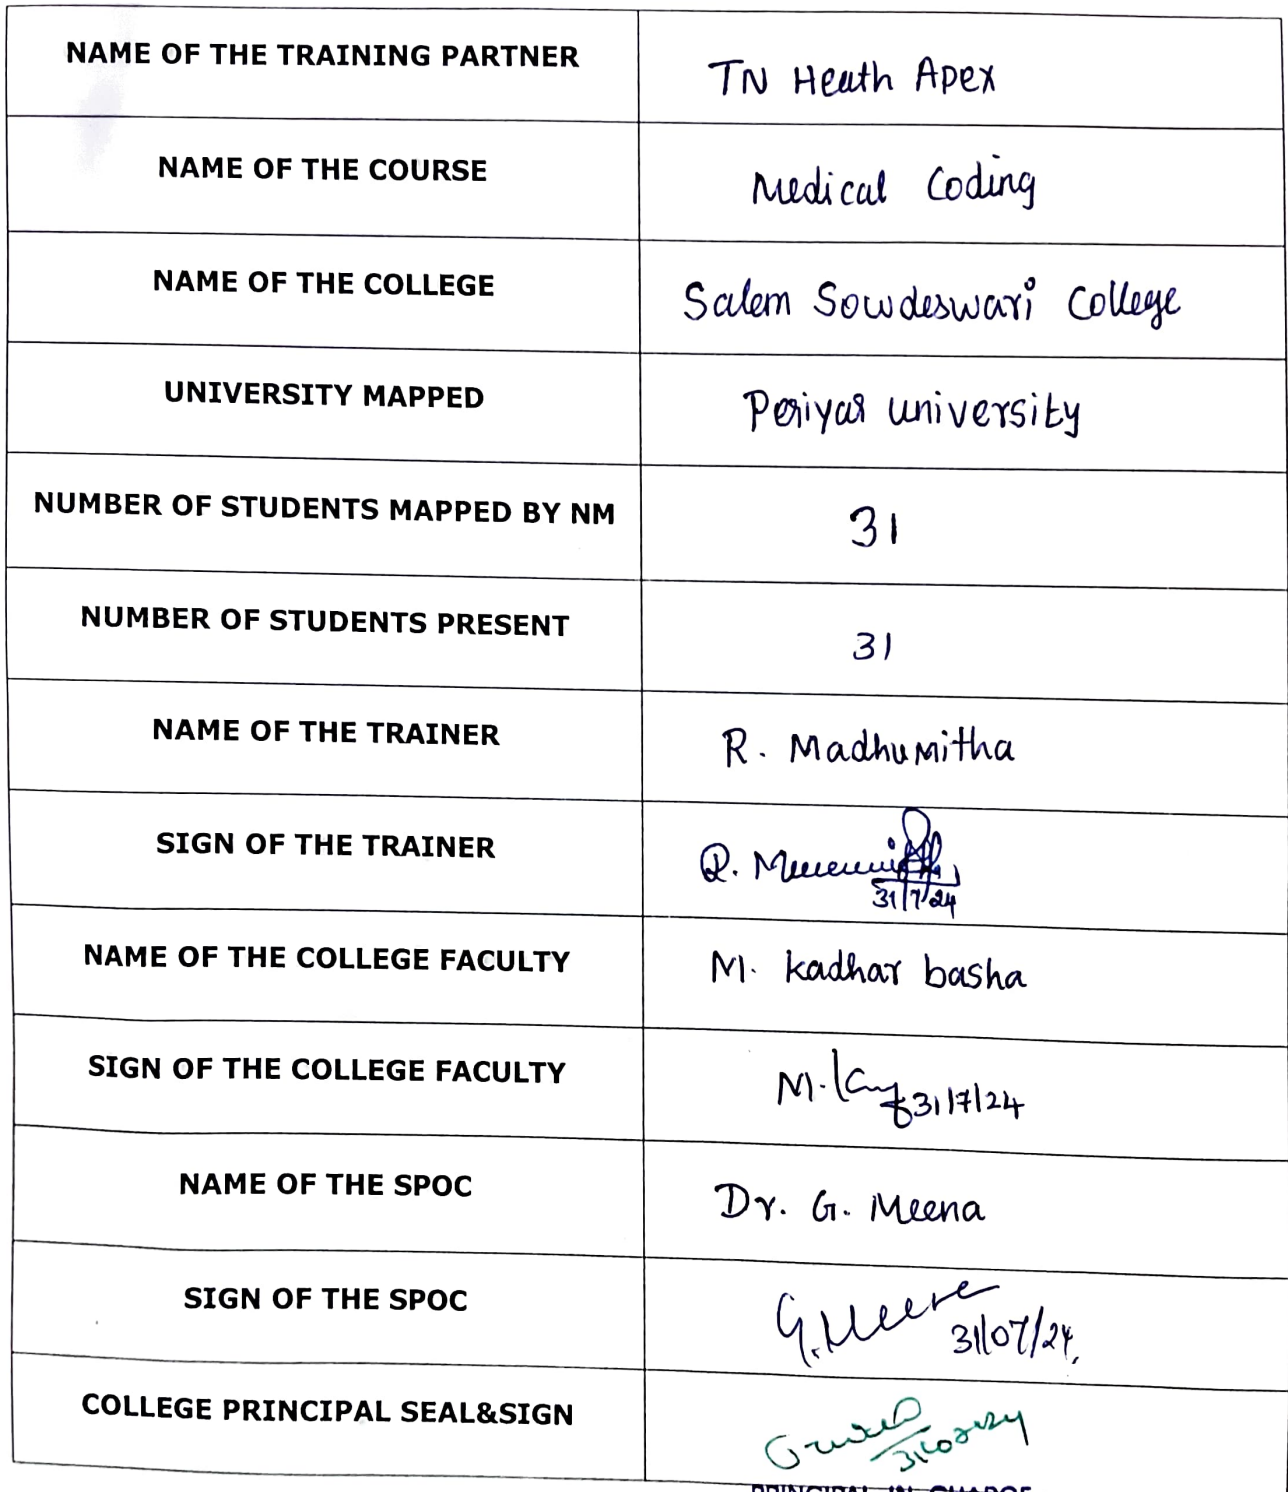 NAME OF THE TRAINING PARTNER
TN Heath Apex
NAME OF THE COURSE
Medical Coding
NAME OF THE COLLEGE
Salem Sowdeswari College
UNIVERSITY MAPPED
Periyar university
NUMBER OF STUDENTS MAPPED BY NM
31
NUMBER OF STUDENTS PRESENT
31
NAME OF THE TRAINER
R. Madhumitha
SIGN OF THE TRAINER
31/7/24
NAME OF THE COLLEGE FACULTY
M. kadhar basha
SIGN OF THE COLLEGE FACULTY
31/7/24
NAME OF THE SPOC
Dr. G. Meena
SIGN OF THE SPOC
G. Meena
31/07/24
COLLEGE PRINCIPAL SEAL&SIGN
PRINCIPAL IN CHARGE